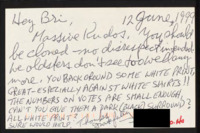 Hey Bri, 12 June, 1999
Massive Kudos. You should
be cloned - no disrespect intended
he oldsters don't see too well any
more. YOU BACKGROUND SOME WHITE PRINT,
GREAT - ESPECIALLY AGAINST WHITE SHIRTS!!
THE NUMBERS ON VOTES ARE SMALL ENOUGH,
CAN'T YOU HAVE THEM A DARK SURROUND?
ALL WHITE PRINT?
SURE WOULD HELP.